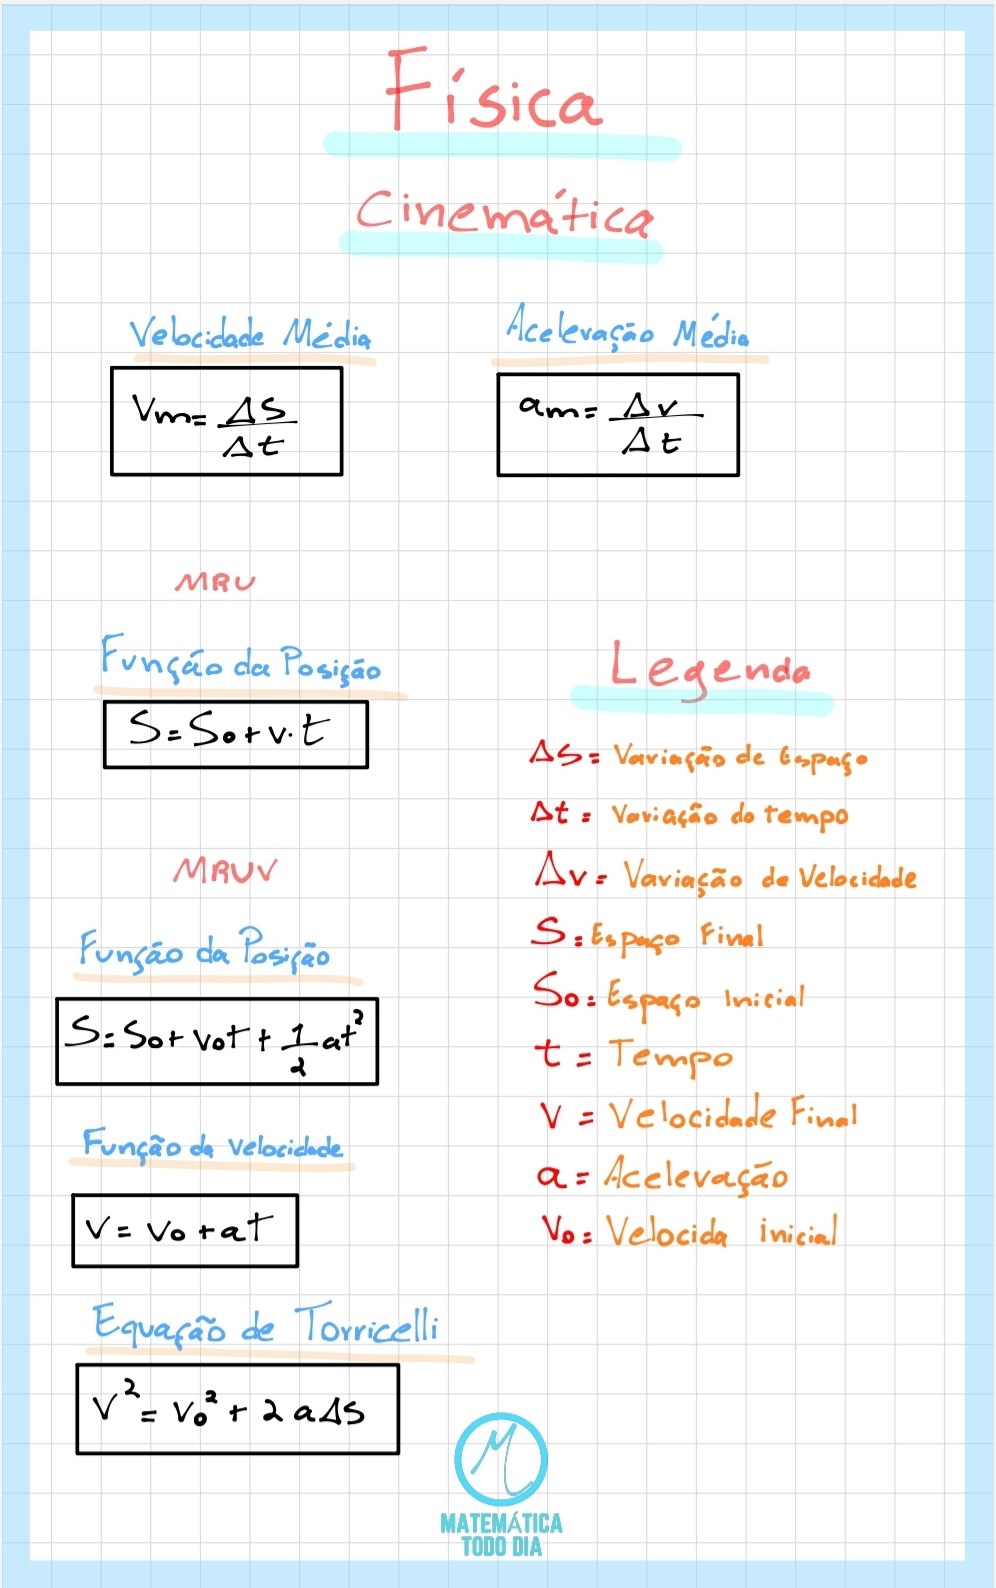 Física
Cinemática
Velocidade Média
Vm = ΔS/Δt
Aceleração Média
am = Δv/Δt
MRU
Função da Posição
S = So + v.t
MRUV
Função da Posição
S = So + Vot + 1/2 at²
Função da Velocidade
V = Vo + at
Equação de Torricelli
V² = Vo² + 2aΔS
Legenda
ΔS = Variação de Espaço
Δt = Variação do tempo
Δv = Variação de Velocidade
S = Espaço Final
So = Espaço Inicial
t = Tempo
V = Velocidade Final
a = Aceleração
Vo = Velocida inicial
M
MATEMÁTICA
TODO DIA